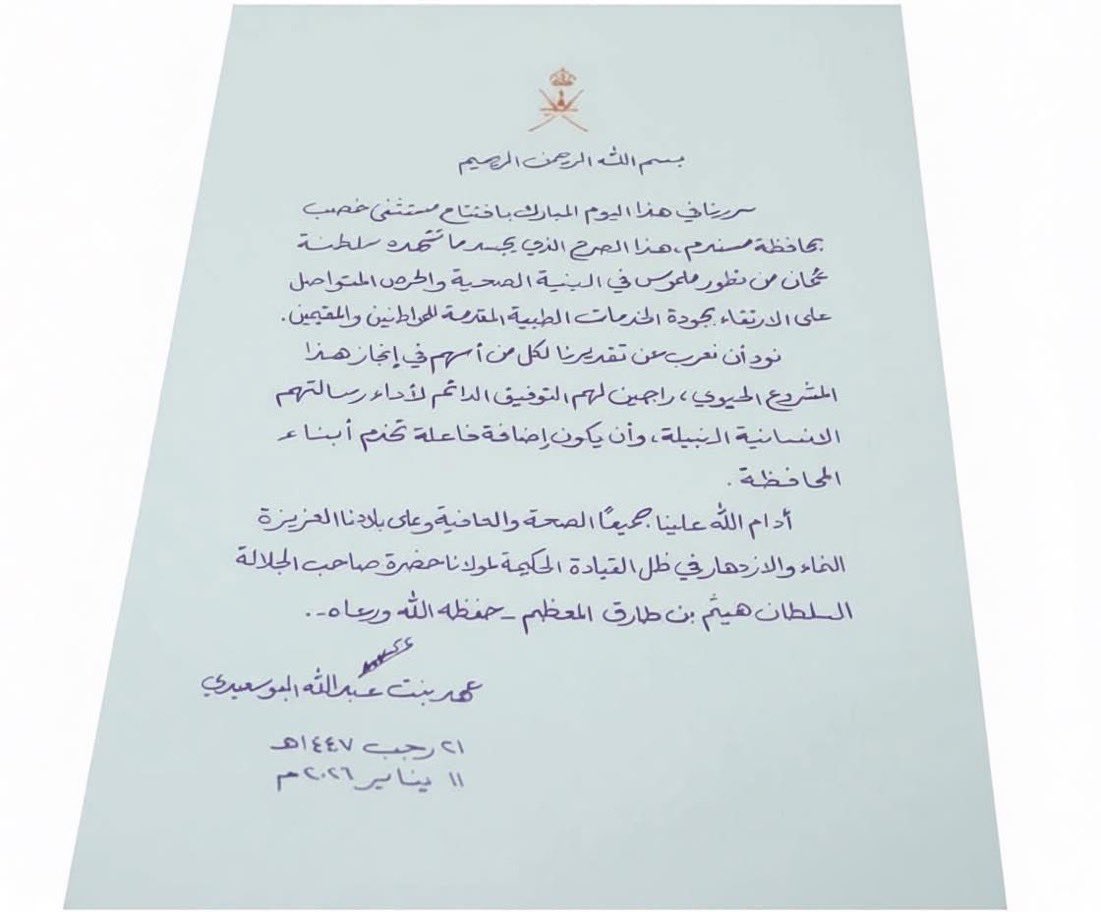 بسم الله الرحمن الرحيم
سررنا في هذا اليوم المبارك بافتتاح مستشفى خصب
بمحافظة مسندم، هذا الصرح الذي يجسد ما تشهده سلطنة
عُمان من تطور ملموس في البنية الصحية والحرص المتواصل
على الارتقاء بجودة الخدمات الطبية المقدمة للمواطنين والمقيمين.
نود أن نعرب عن تقديرنا لكل من أسهم في إنجاز هذا
المشروع الحيوي، راجين لهم التوفيق الدائم لأداء رسالتهم
الانسانية النبيلة، وأن يكون إضافة فاعلة تخدم أبناء
المحافظة.
أدام الله علينا جميعًا الصحة والعافية وعلى بلادنا العزيزة
النماء والازدهار في ظل القيادة الحكيمة لمولانا حضرة صاحب الجلالة
السلطان هيثم بن طارق المعظم - حفظه الله ورعاه -.
عهد بنت عبدالله البوسعيدي
٢١ رجب ١٤٤٧هـ
١١ يناير ٢٠٢٦م